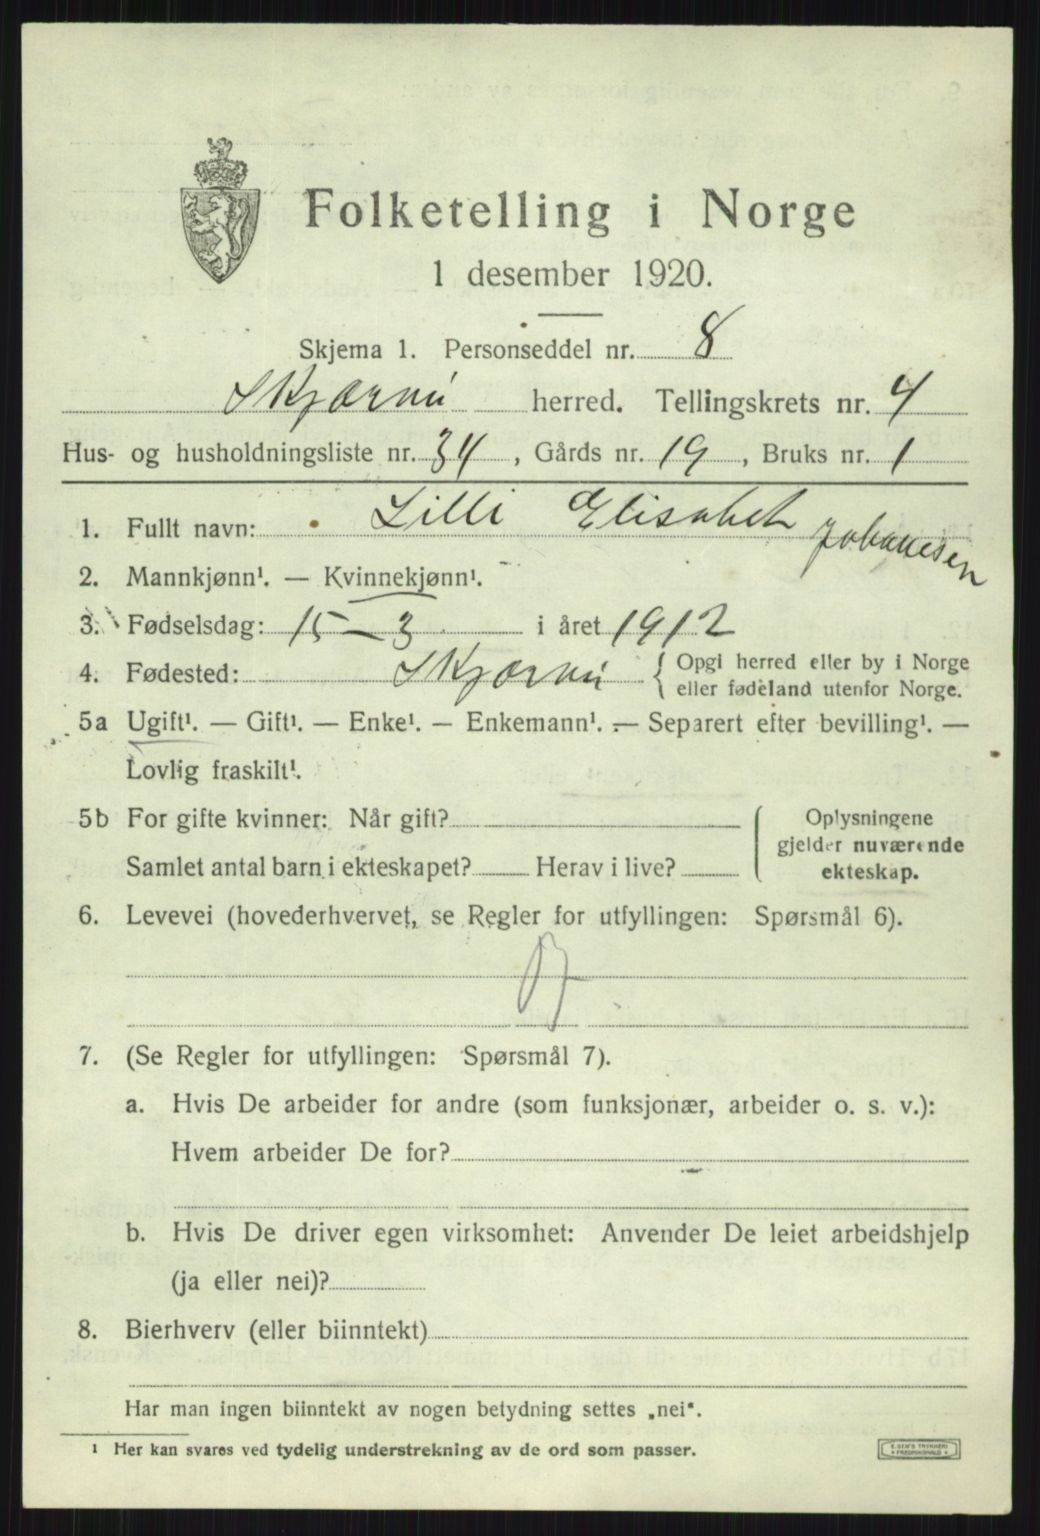 Folketelling i Norge
1 desember 1920.
Skjema 1. Personseddel nr. 8
Skjærvøi herred. Tellingskrets nr. 4
Hus- og husholdningsliste nr. 34, Gårds nr. 19, Bruks nr. 1
1. Fullt navn: Lilli Elisabet Johanesen
2. Mannkjønn¹. — Kvinnekjønn¹.
3. Fødselsdag: 15-3 i året 1912
4. Fødested: Skjærvøi { Opgi herred eller by i Norge
eller fødeland utenfor Norge.
5a Ugift¹. — Gift¹. — Enke¹. — Enkemann¹. — Separert efter bevilling¹. —
Lovlig fraskilt¹.
5b For gifte kvinner: Når gift?
Samlet antal barn i ekteskapet? Herav i live?
Oplysningene
gjelder nuværende
ekteskap.
6. Levevei (hovederhvervet, se Regler for utfyllingen: Spørsmål 6).
7. (Se Regler for utfyllingen: Spørsmål 7).
a. Hvis De arbeider for andre (som funksjonær, arbeider o. s. v.):
Hvem arbeider De for?
b. Hvis De driver egen virksomhet: Anvender De leiet arbeidshjelp
(ja eller nei)?
8. Bierhverv (eller biinntekt)
Har man ingen biinntekt av nogen betydning settes „nei".
¹ Her kan svares ved tydelig understrekning av de ord som passer.